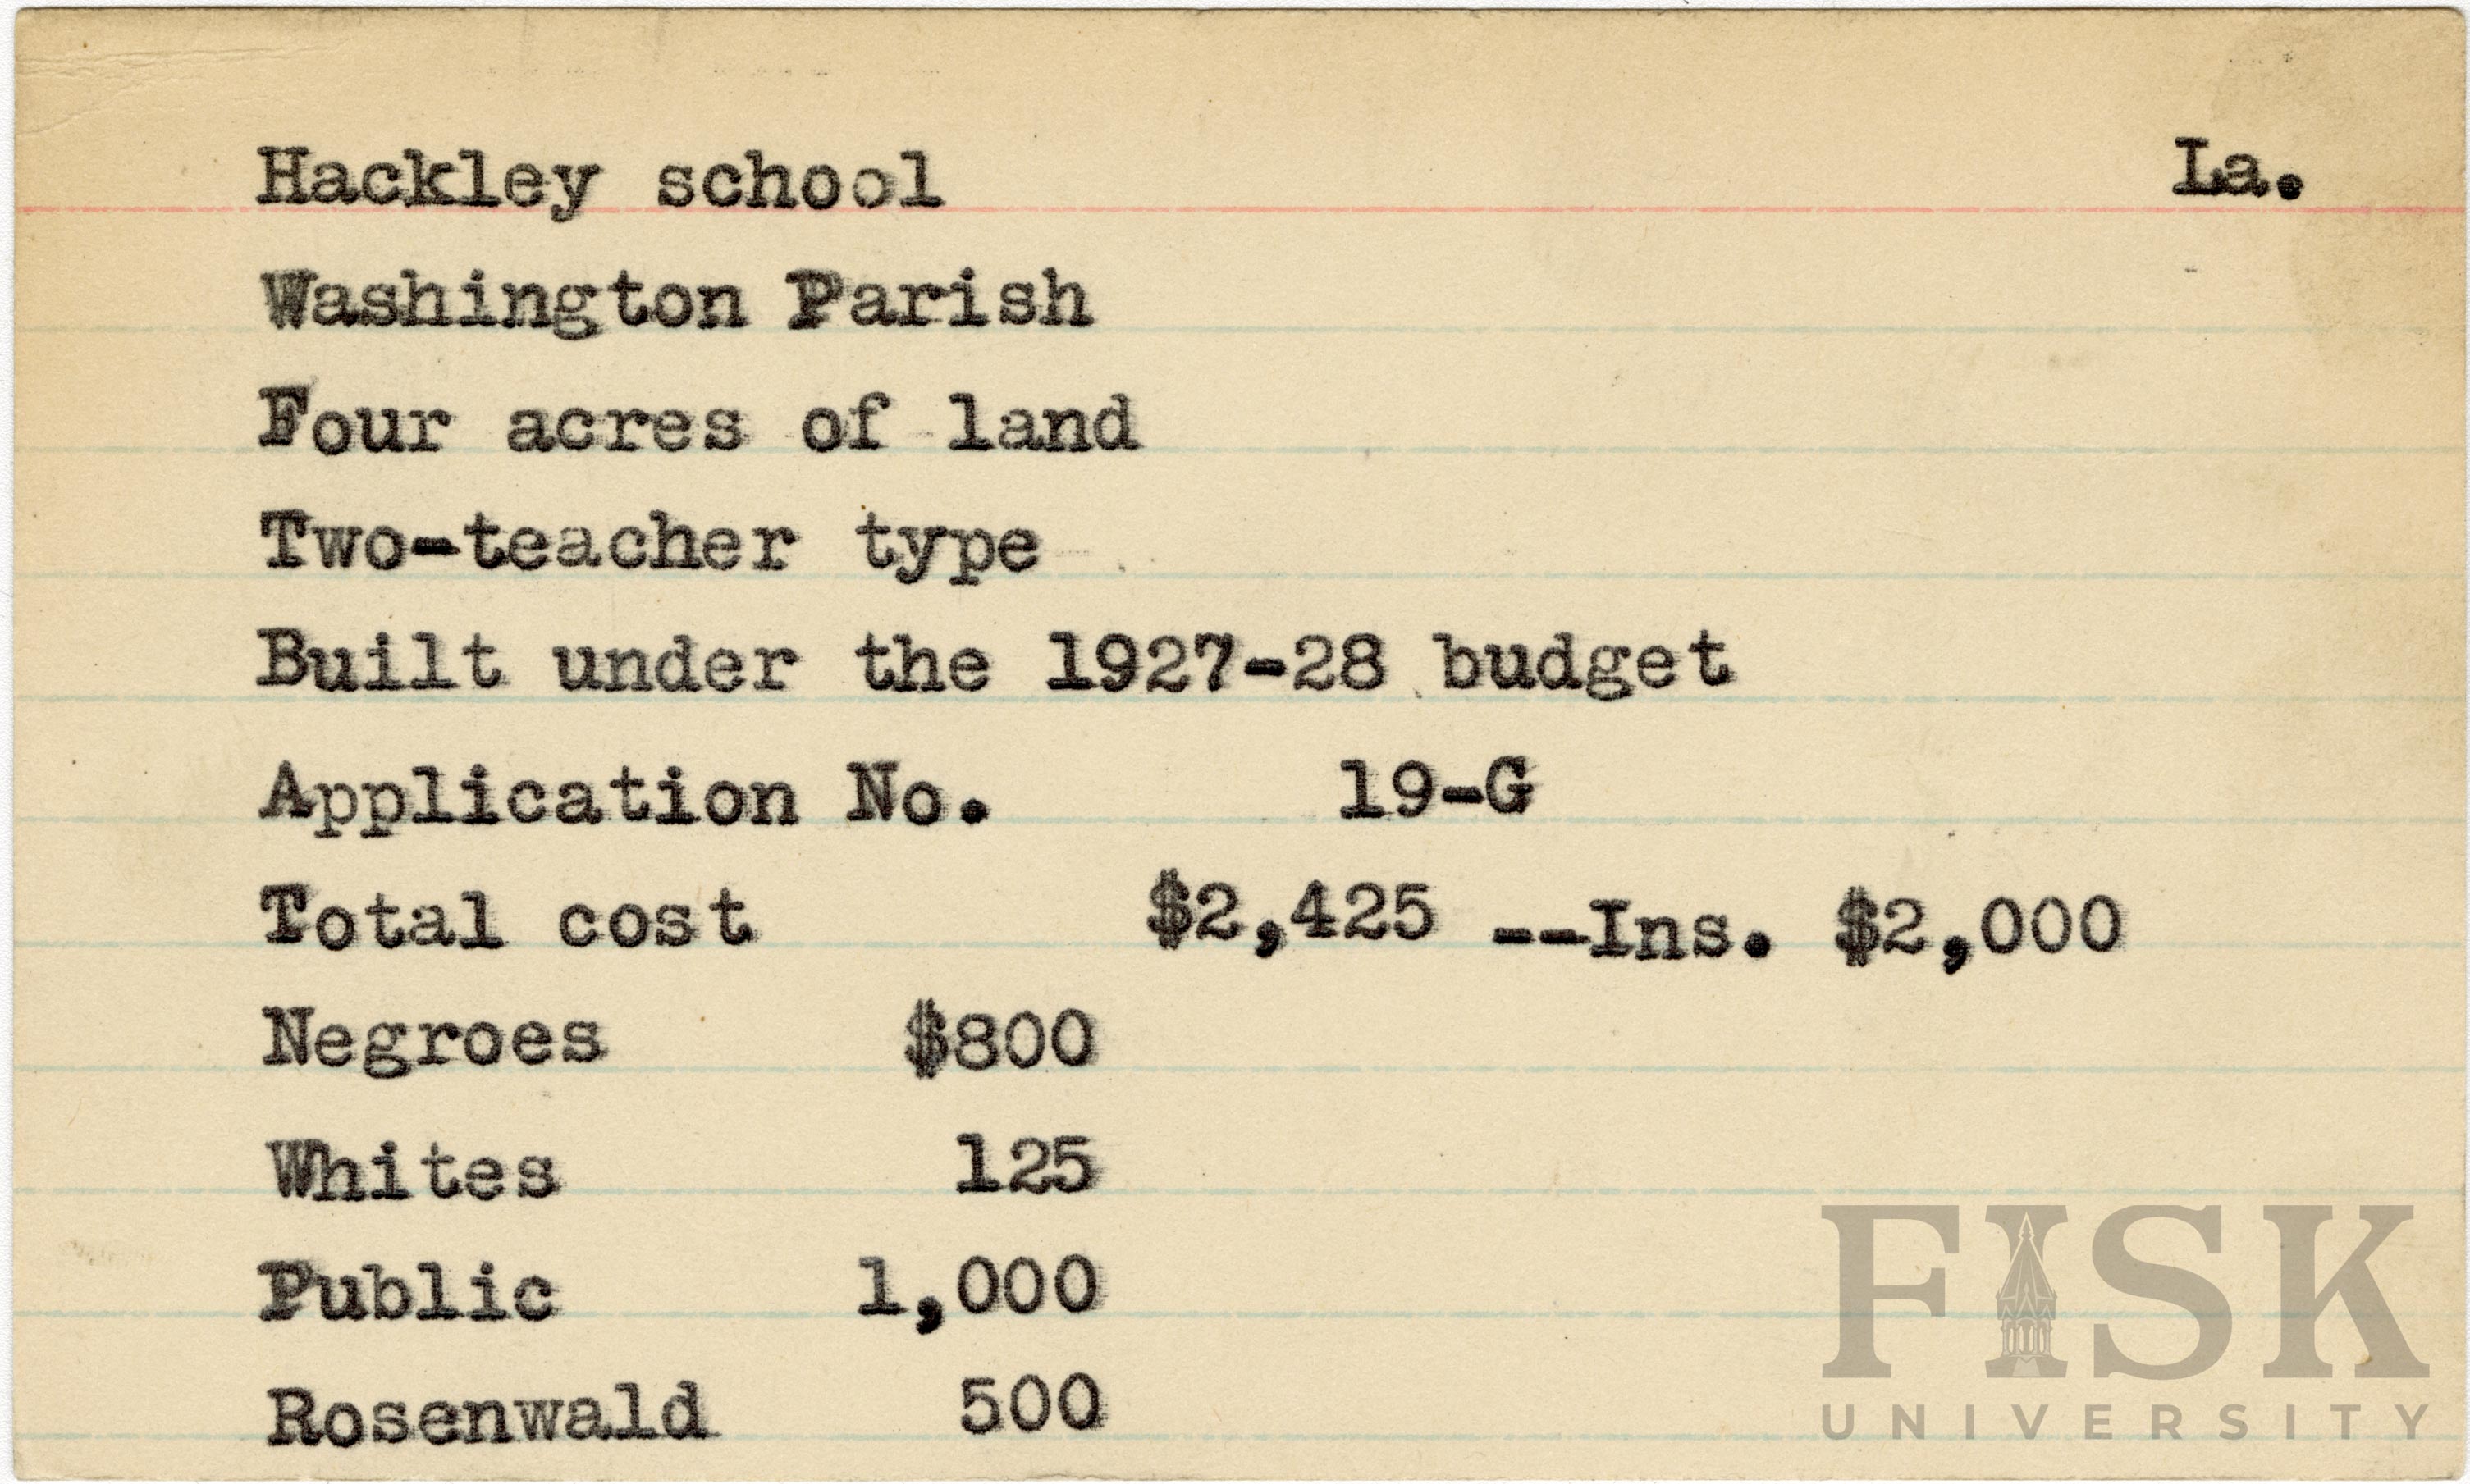 Hackley school La.
Washington Parish
Four acres of land
Two-teacher type
Built under the 1927-28 budget
Application No. 19-G
Total cost $2,425 --Ins. $2,000
Negroes $800
Whites 125
Public 1,000
Rosenwald 500
FISK
UNIVERSITY